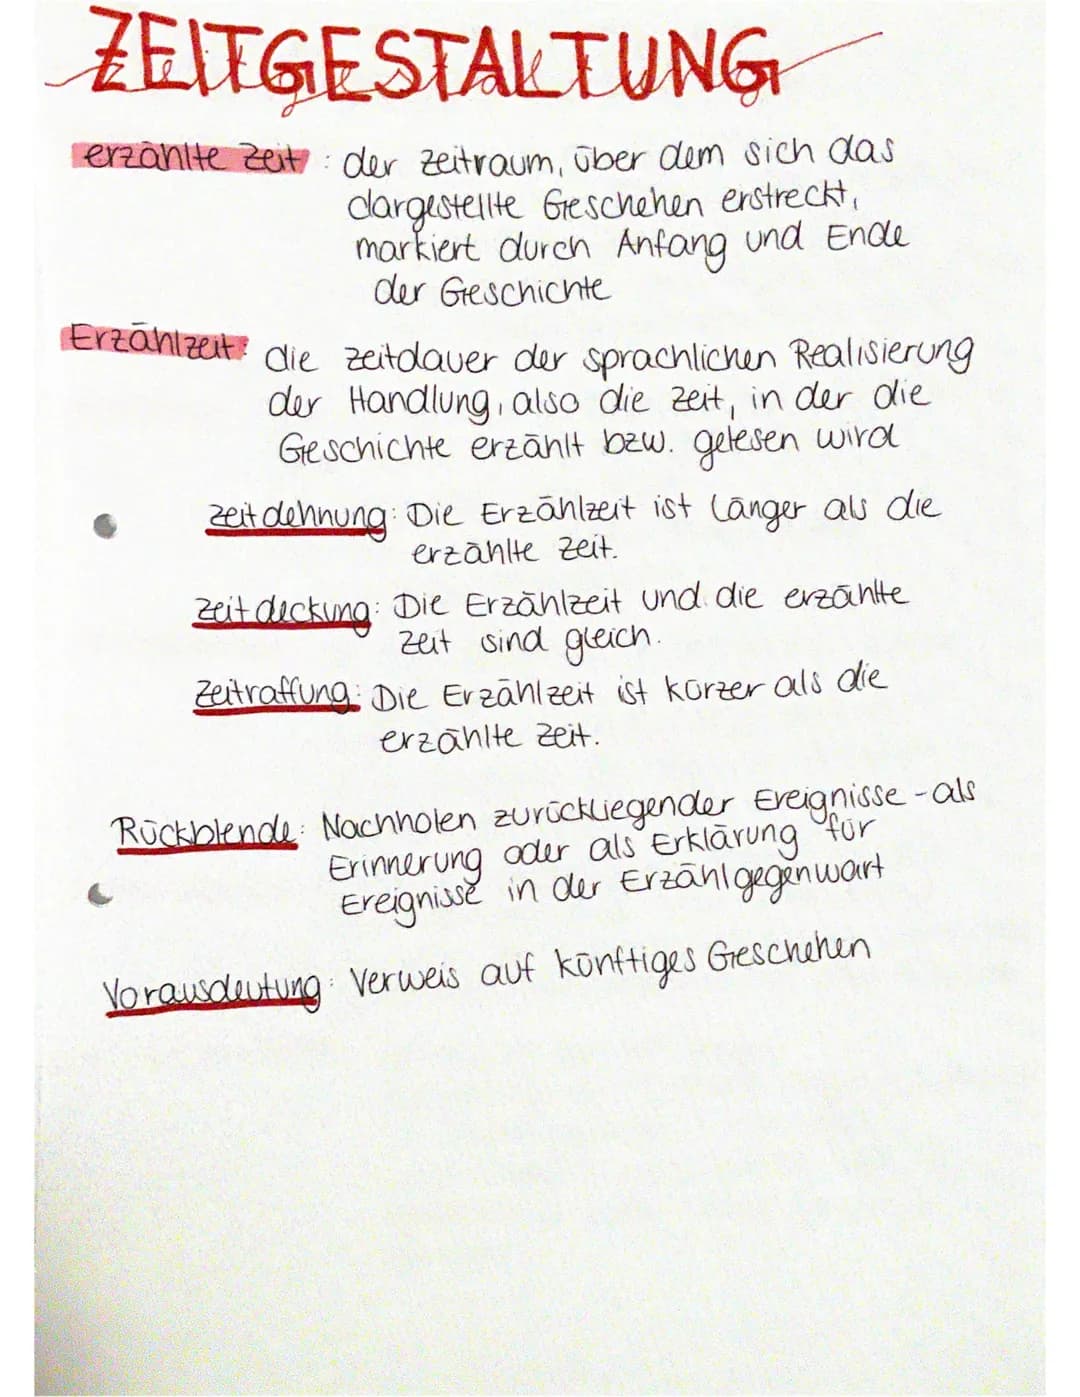 ZEITGESTALTUNG
erzählte Zeit: der Zeitraum, über dem sich das
dargestellte Geschehen erstreckt,
markiert durch Anfang und Ende
der Geschichte
Erzählzeit: die Zeitdauer der sprachlichen Realisierung
der Handlung, also die Zeit, in der die
Geschichte erzählt bzw. gelesen wird
Zeitdehnung: Die Erzählzeit ist länger als die
erzählte Zeit.
Zeitdeckung: Die Erzählzeit und die erzählte
Zeit sind gleich.
Zeitraffung: Die Erzählzeit ist kürzer als die
erzählte Zeit.
Rückblende: Nachholen zurückliegender Ereignisse - als
Erinnerung oder als Erklärung für
Ereignisse in der Erzählgegenwart
Vorausdeutung: Verweis auf künftiges Geschehen